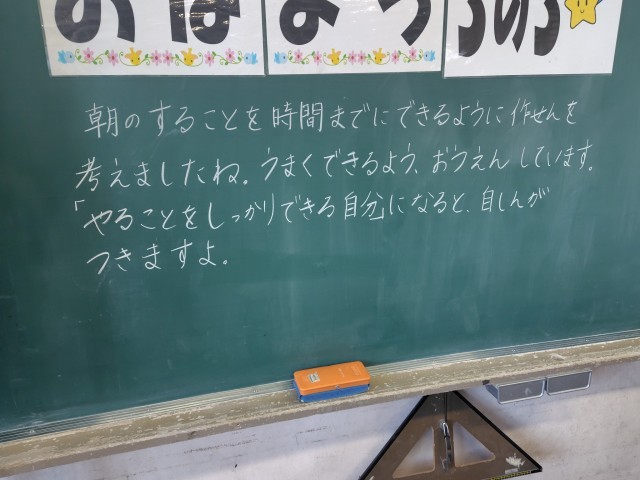 おはよう
朝のすることを時間までにできるように作せんを
考えましたね。うまくできるよう、おうえんしています。
「やることをしっかりできる自分になると、自しんが
つきますよ。